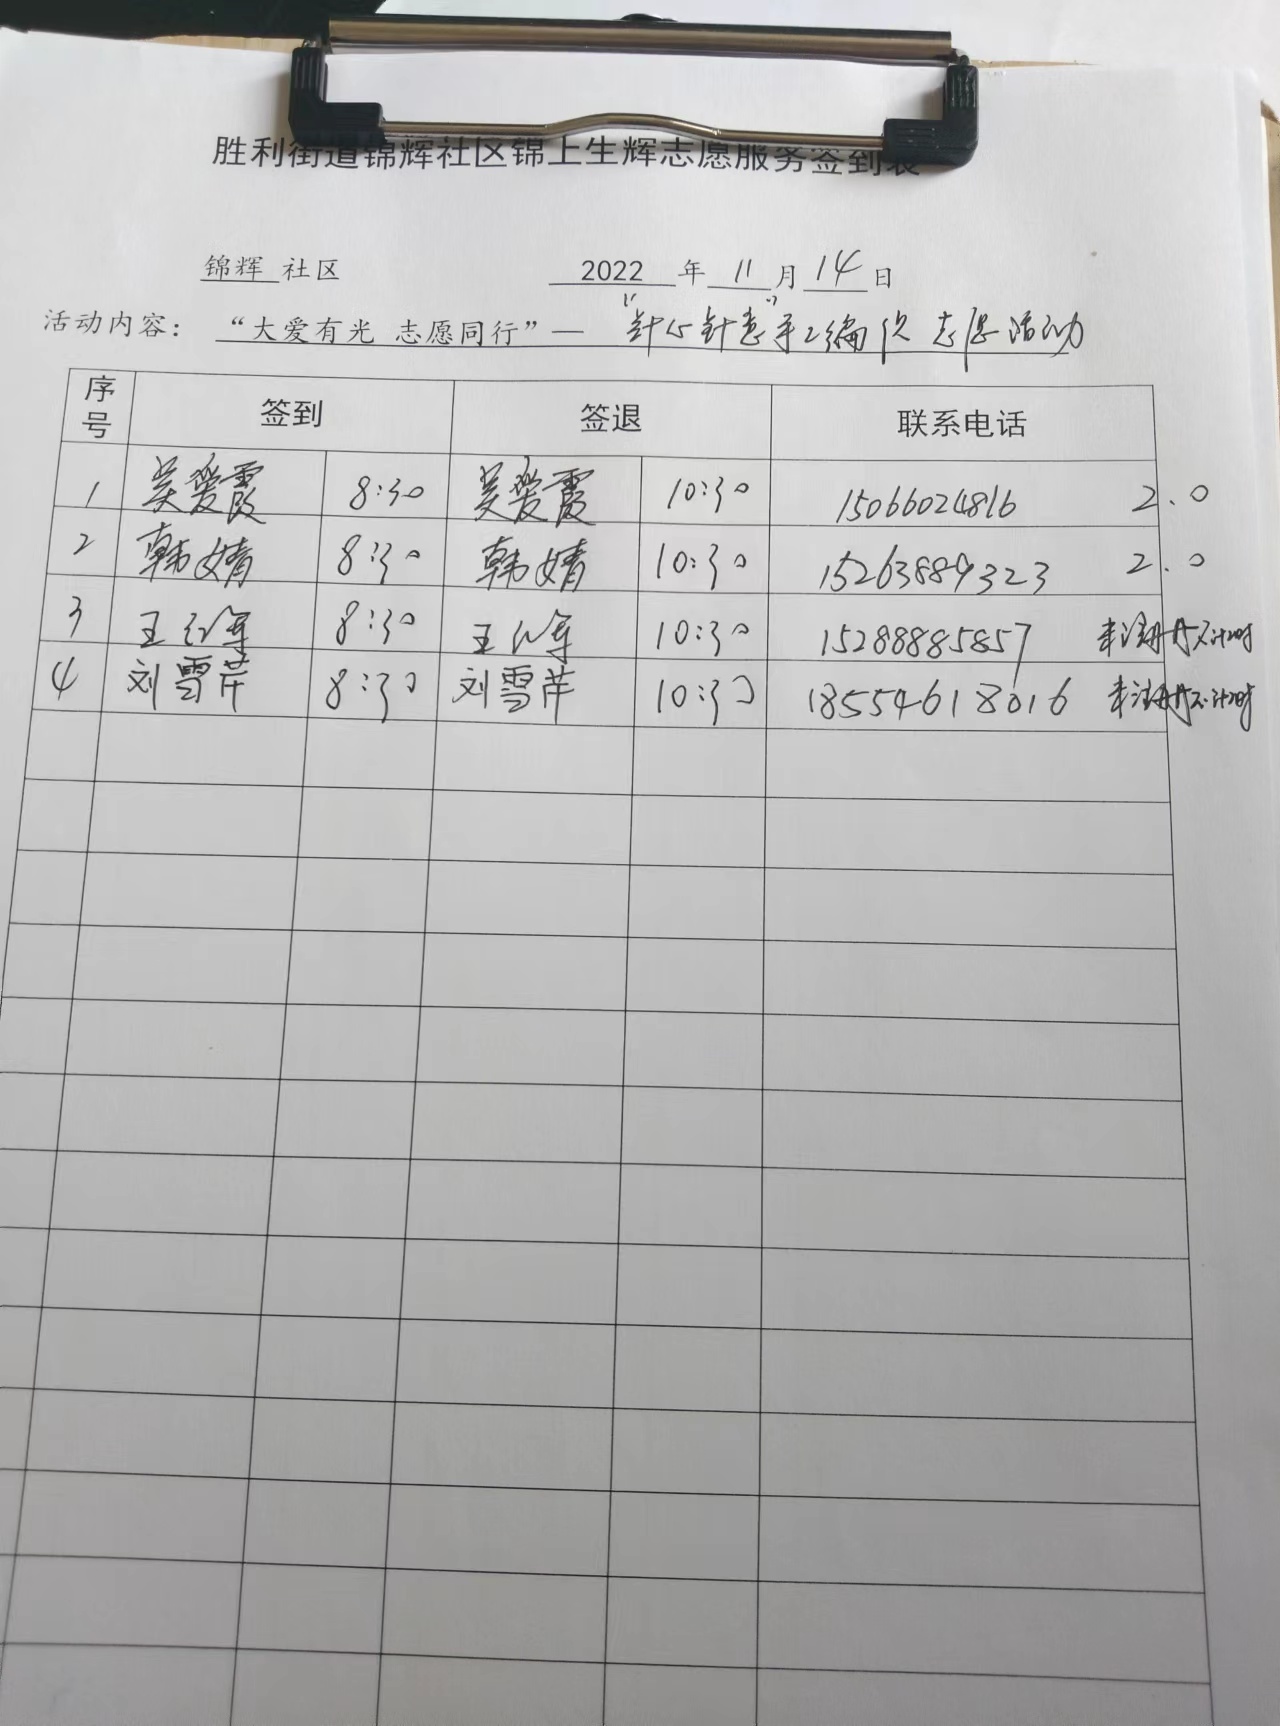 胜利街道锦辉社区锦上生辉志愿服务签到表
锦辉 社区 2022 年 11 月 14 日
活动内容： “大爱有光 志愿同行”— “针心针意”手工编织 志愿活动
序号 签到 签退 联系电话
1 吴爱霞 8:30 吴爱霞 10:30 15066024816 2.0
2 韩婧 8:30 韩婧 10:30 15263889323 2.0
3 王红军 8:30 王红军 10:30 15288885857 未注册不计时
4 刘雪芹 8:30 刘雪芹 10:30 18554618016 未注册不计时